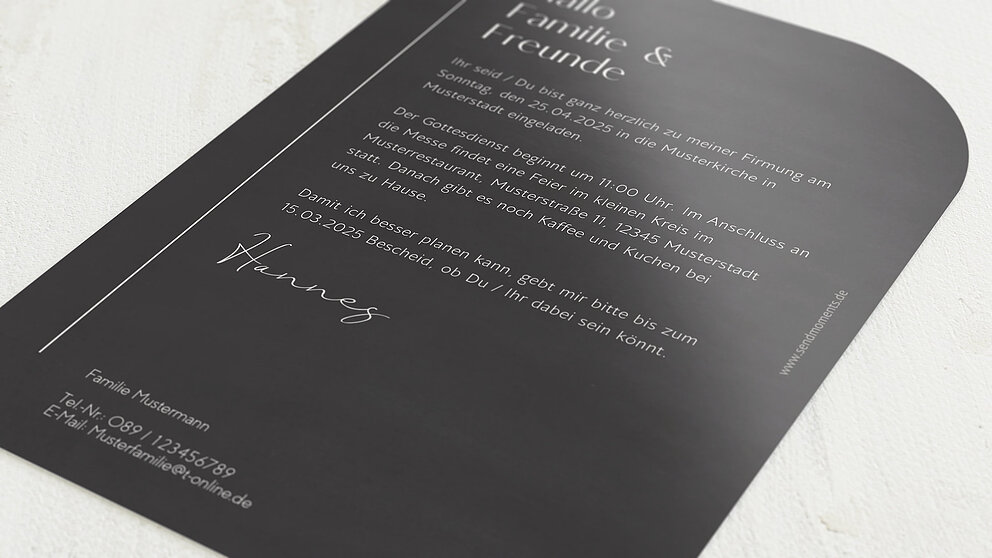 Hallo
Familie &
Freunde
Ihr seid / Du bist ganz herzlich zu meiner Firmung am
Sonntag, den 25.04.2025 in die Musterkirche in
Musterstadt eingeladen.
Der Gottesdienst beginnt um 11:00 Uhr. Im Anschluss an
die Messe findet eine Feier im kleinen Kreis im
Musterrestaurant, Musterstraße 11, 12345 Musterstadt
statt. Danach gibt es noch Kaffee und Kuchen bei
uns zu Hause.
Damit ich besser planen kann, gebt mir bitte bis zum
15.03.2025 Bescheid, ob Du / Ihr dabei sein könnt.
Hannes
Familie Mustermann
Tel.-Nr.: 089 / 123456789
E-Mail: Musterfamilie@t-online.de
www.sendmoments.de